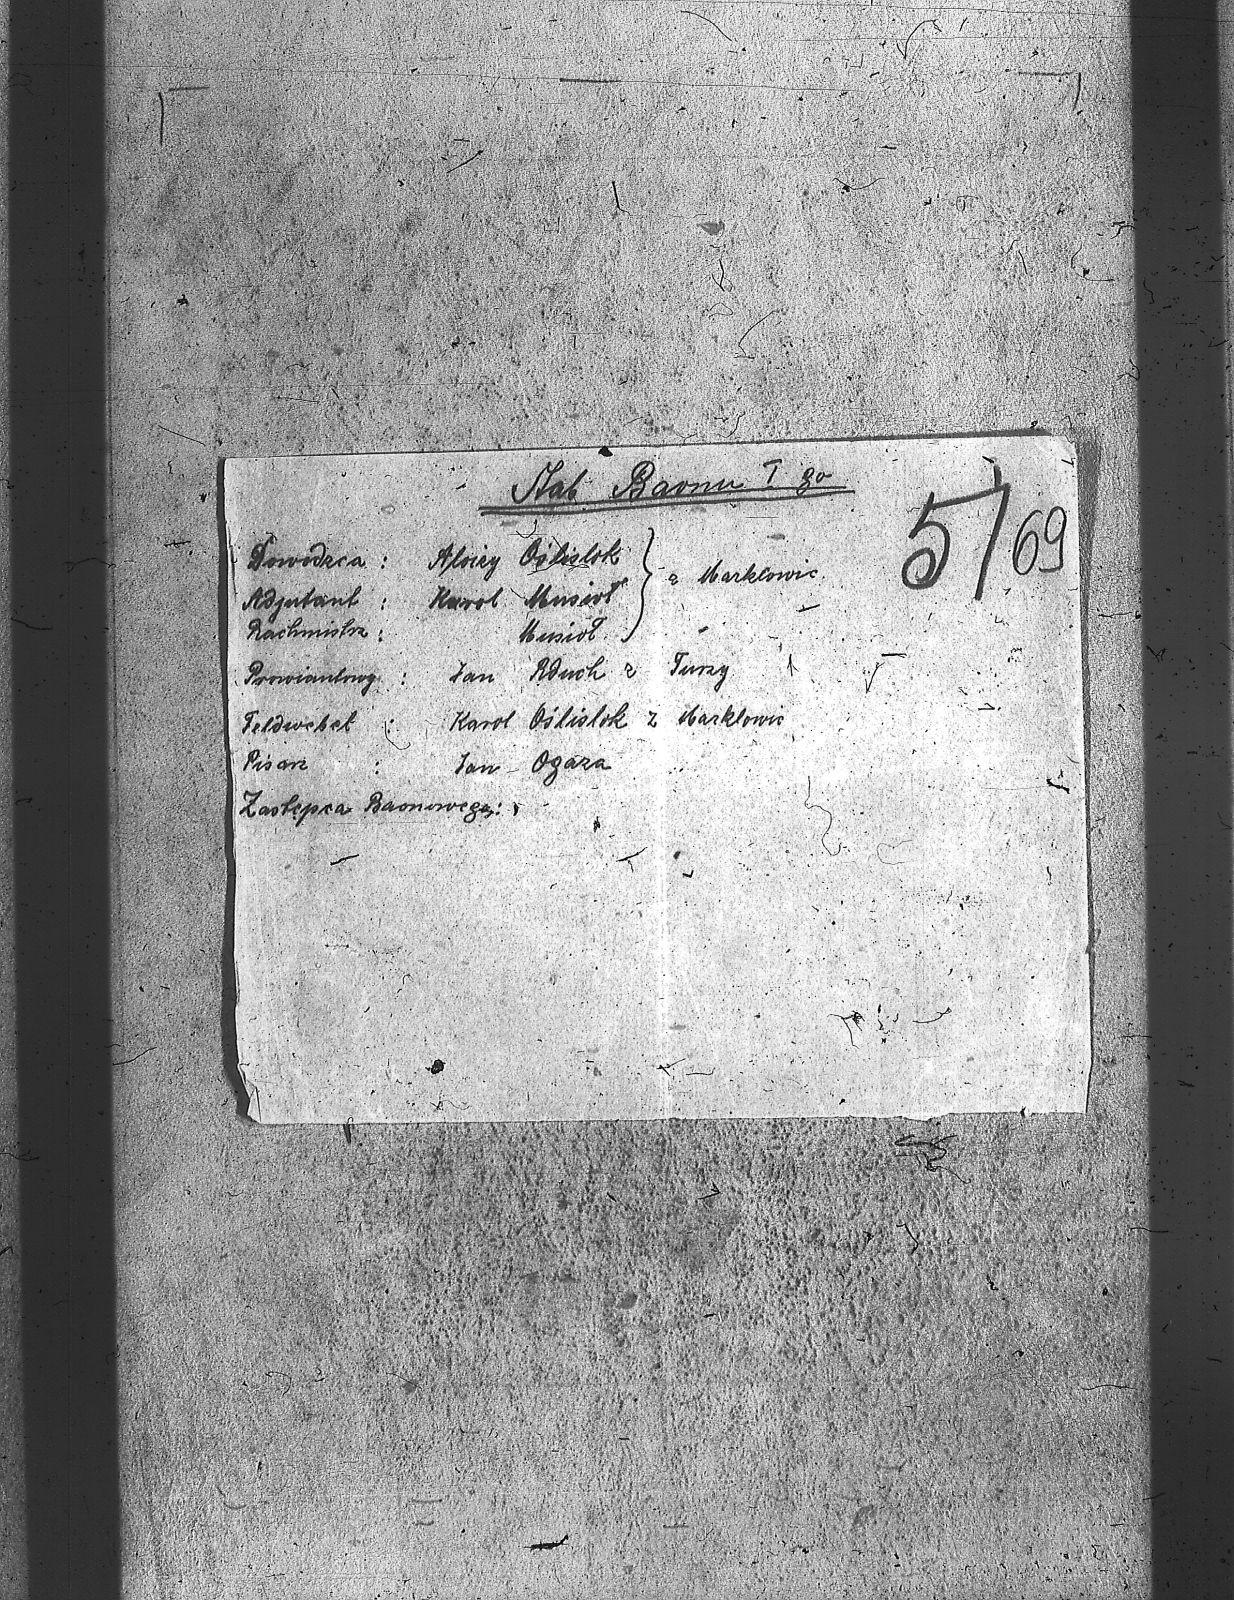 Stab Baonu I go
5/69
Dowódzca : Alojzy Oślislok
Adjutant : Karol Musioł } z Marklowic
Rachmistrz : Musioł
Prowiantowy : Jan Aduch z Turzy
Feldwebel : Karol Oślislok z Marklowic
Pisarz : Jan Ogaza
Zastępca Baonowego :